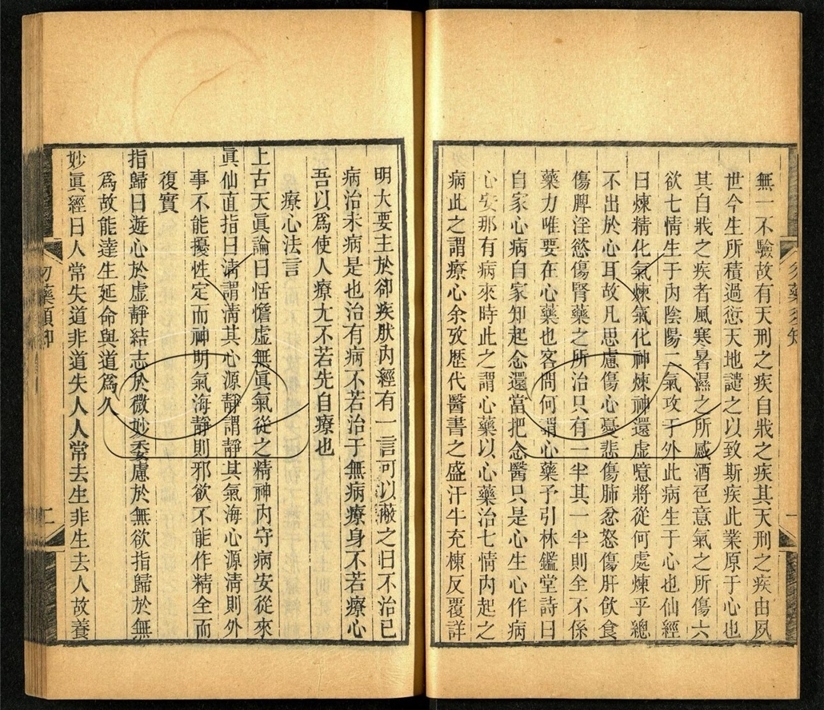 無一不驗故有天刑之疾自戕之疾其天刑之疾由夙
世今生所積過愆天地譴之以致斯疾此業原于心也
其自戕之疾者風寒暑濕之所感酒色意氣之所傷六
欲七情生于内陰陽二氣攻于外此病生于心也仙經
曰煉精化氣煉氣化神煉神還虚噫將從何處煉乎總
不出於心耳故凡思慮傷心憂悲傷肺忿怒傷肝飲食
傷脾淫慾傷腎藥之所治只有一半其一半則全不係
藥力唯要在心藥也客問何謂心藥予引林鑑堂詩曰
自家心病自家知起念還當把念醫只是心生心作病
心安那有病來時此之謂心藥以心藥治七情内起之
病此之謂療心余攷歴代醫書之盛汗牛充棟反覆詳
勿藥須知
一
明大要主於卻疾狀内經有一言可以蔽之曰不治已
病治未病是也治有病不若治于無病療身不若療心
吾以爲使人療尤不若先自療也
療心法言
上古天眞論曰恬憺虚無眞氣從之精神内守病安從來
眞仙直指曰清謂清其心源靜謂靜其氣海心源清則外
事不能擾性定而神明氣海靜則邪欲不能作精全而
復實
指歸曰遊心於虚靜結志於微妙委慮於無欲指歸於無
爲故能達生延命與道爲久
妙眞經曰人常失道非道失人人常去生非生去人故養
勿藥須知
二